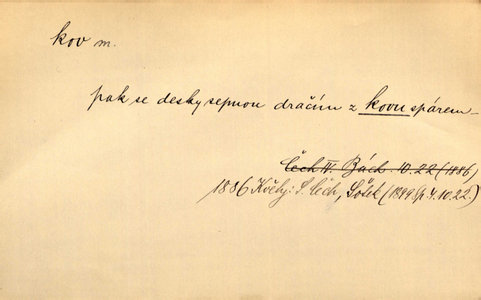 kov m.
pak se desky sepnou dračím z kovu spárem –
Čech IV. Bách. 10.22 (1886)
1886 Květy: S. Čech, Sošek (1899) p. 4.10.22.)